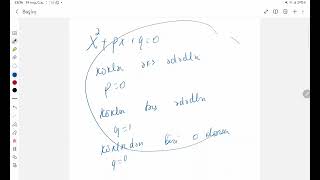 Başlıq
x² + px + q = 0
köklər əks ədədlər
p = 0
köklər tərs ədədlər
q = 1
köklərdən biri 0 olarsa
q = 0